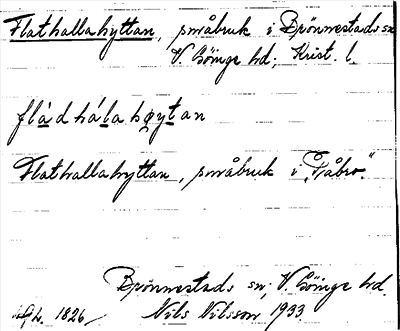 Flathallahyttan, småbruk i Brönnestads sn
V. Göinge hd; Krist. l.
fládhálahøytan
Flathallahyttan, småbruk i „Tåbro.”
Brönnestads sn, V. Göinge hd.
1826 Nils Nilsson, 1933.